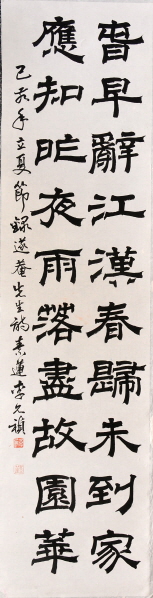 昔早辭江漢春歸未到家
應知昨夜雨落盡故園華
己亥年立夏節錄遂菴先生詩素蓮李久禎